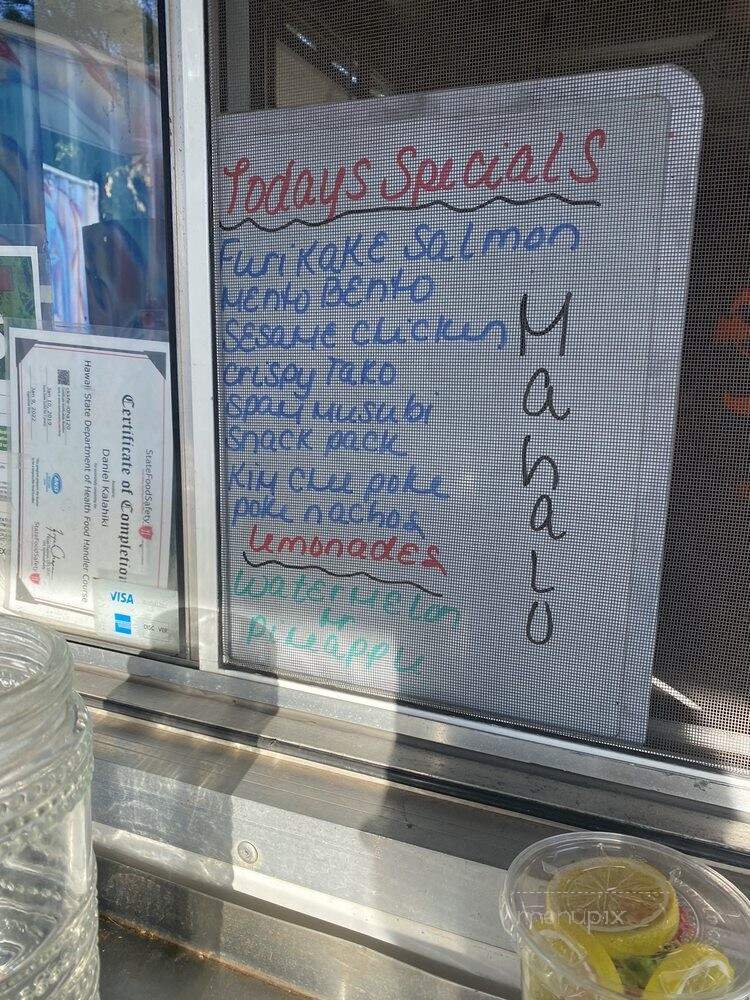 Todays Specials
Furikake Salmon
Mento Bento
Sesame Chicken
Crispy Tako
Spam Musubi
Snack pack
Kim Chee poke
poke nachos
Lemonades
Watermelon
or
Pineapple
Mahalo
StateFoodSafety
Certificate of Completion
Daniel Kalahiki
Hawaii State Department of Health Food Handler Course
Jan 10, 2019
Jan 9, 2022
StateFoodSafety
VISA
DISC VER
menupix